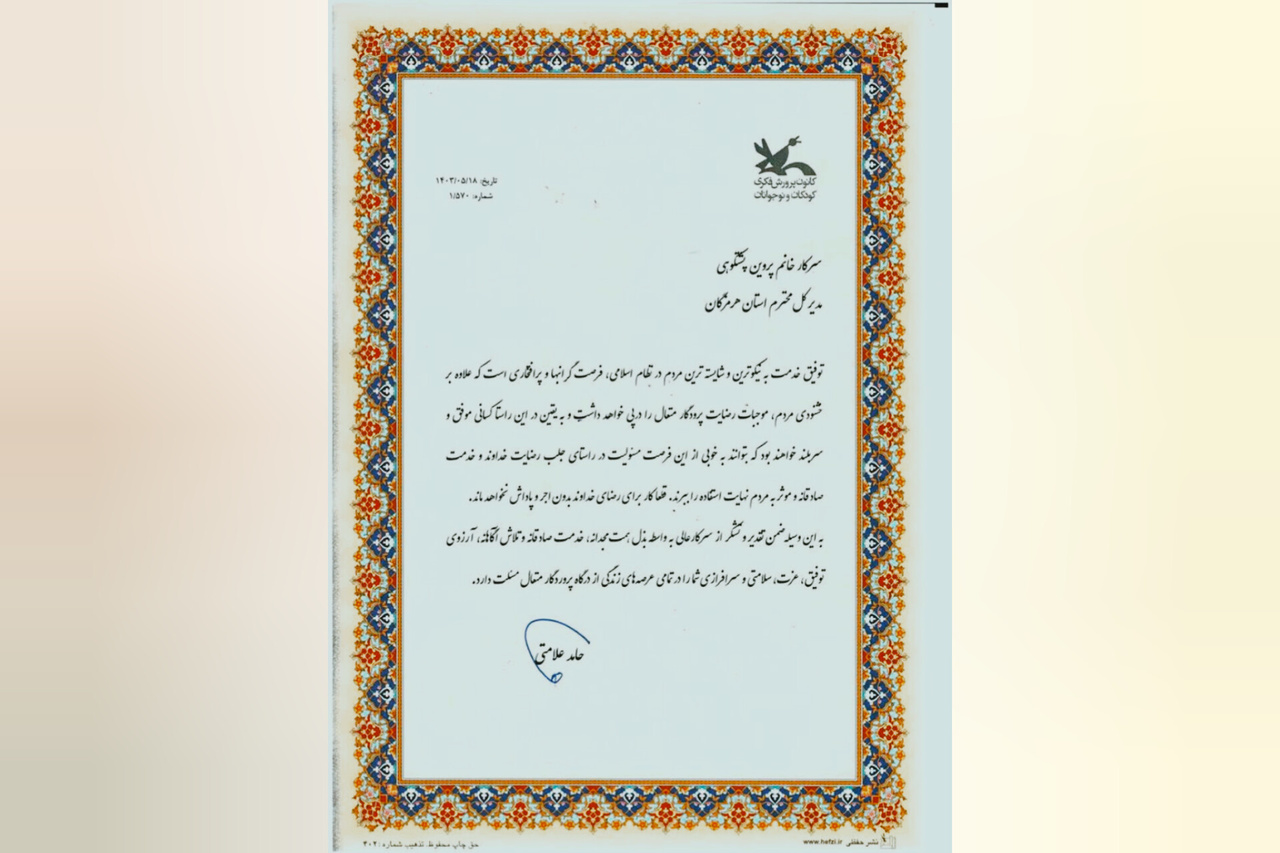 کانون پرورش فکری
کودکان و نوجوانان
تاریخ: ۱۴۰۳/۰۵/۱۸
شماره: ۱/۵۷۰
سرکار خانم پروین پشتکوهی
مدیر کل محترم استان هرمزگان
توفیق خدمت به نیکوترین و شایسته ترین مردم در نظام اسلامی، فرصت گرانبها و پرافتخاری است که علاوه بر
خشنودی مردم، موجبات رضایت پروردگار متعال را در پی خواهد داشت و به یقین در این راستا کسانی موفق و
سربلند خواهند بود که بتوانند به خوبی از این فرصت مسئولیت در راستای جلب رضایت خداوند و خدمت
صادقانه و موثر به مردم نهایت استفاده را ببرند. قطعا کار برای رضای خداوند بدون اجر و پاداش نخواهد ماند.
به این وسیله ضمن تقدیر و تشکر از سرکارعالی به واسطه بذل همت مجدانه، خدمت صادقانه و تلاش آگاهانه، آرزوی
توفیق، عزت، سلامتی و سرافرازی شما را در تمامی عرصه های زندگی از درگاه پروردگار متعال مسئلت دارد.
حامد علامتی
نشر حفظی www.hafzi.ir
حق چاپ محفوظ. تذهیب شماره: ۴۰۲